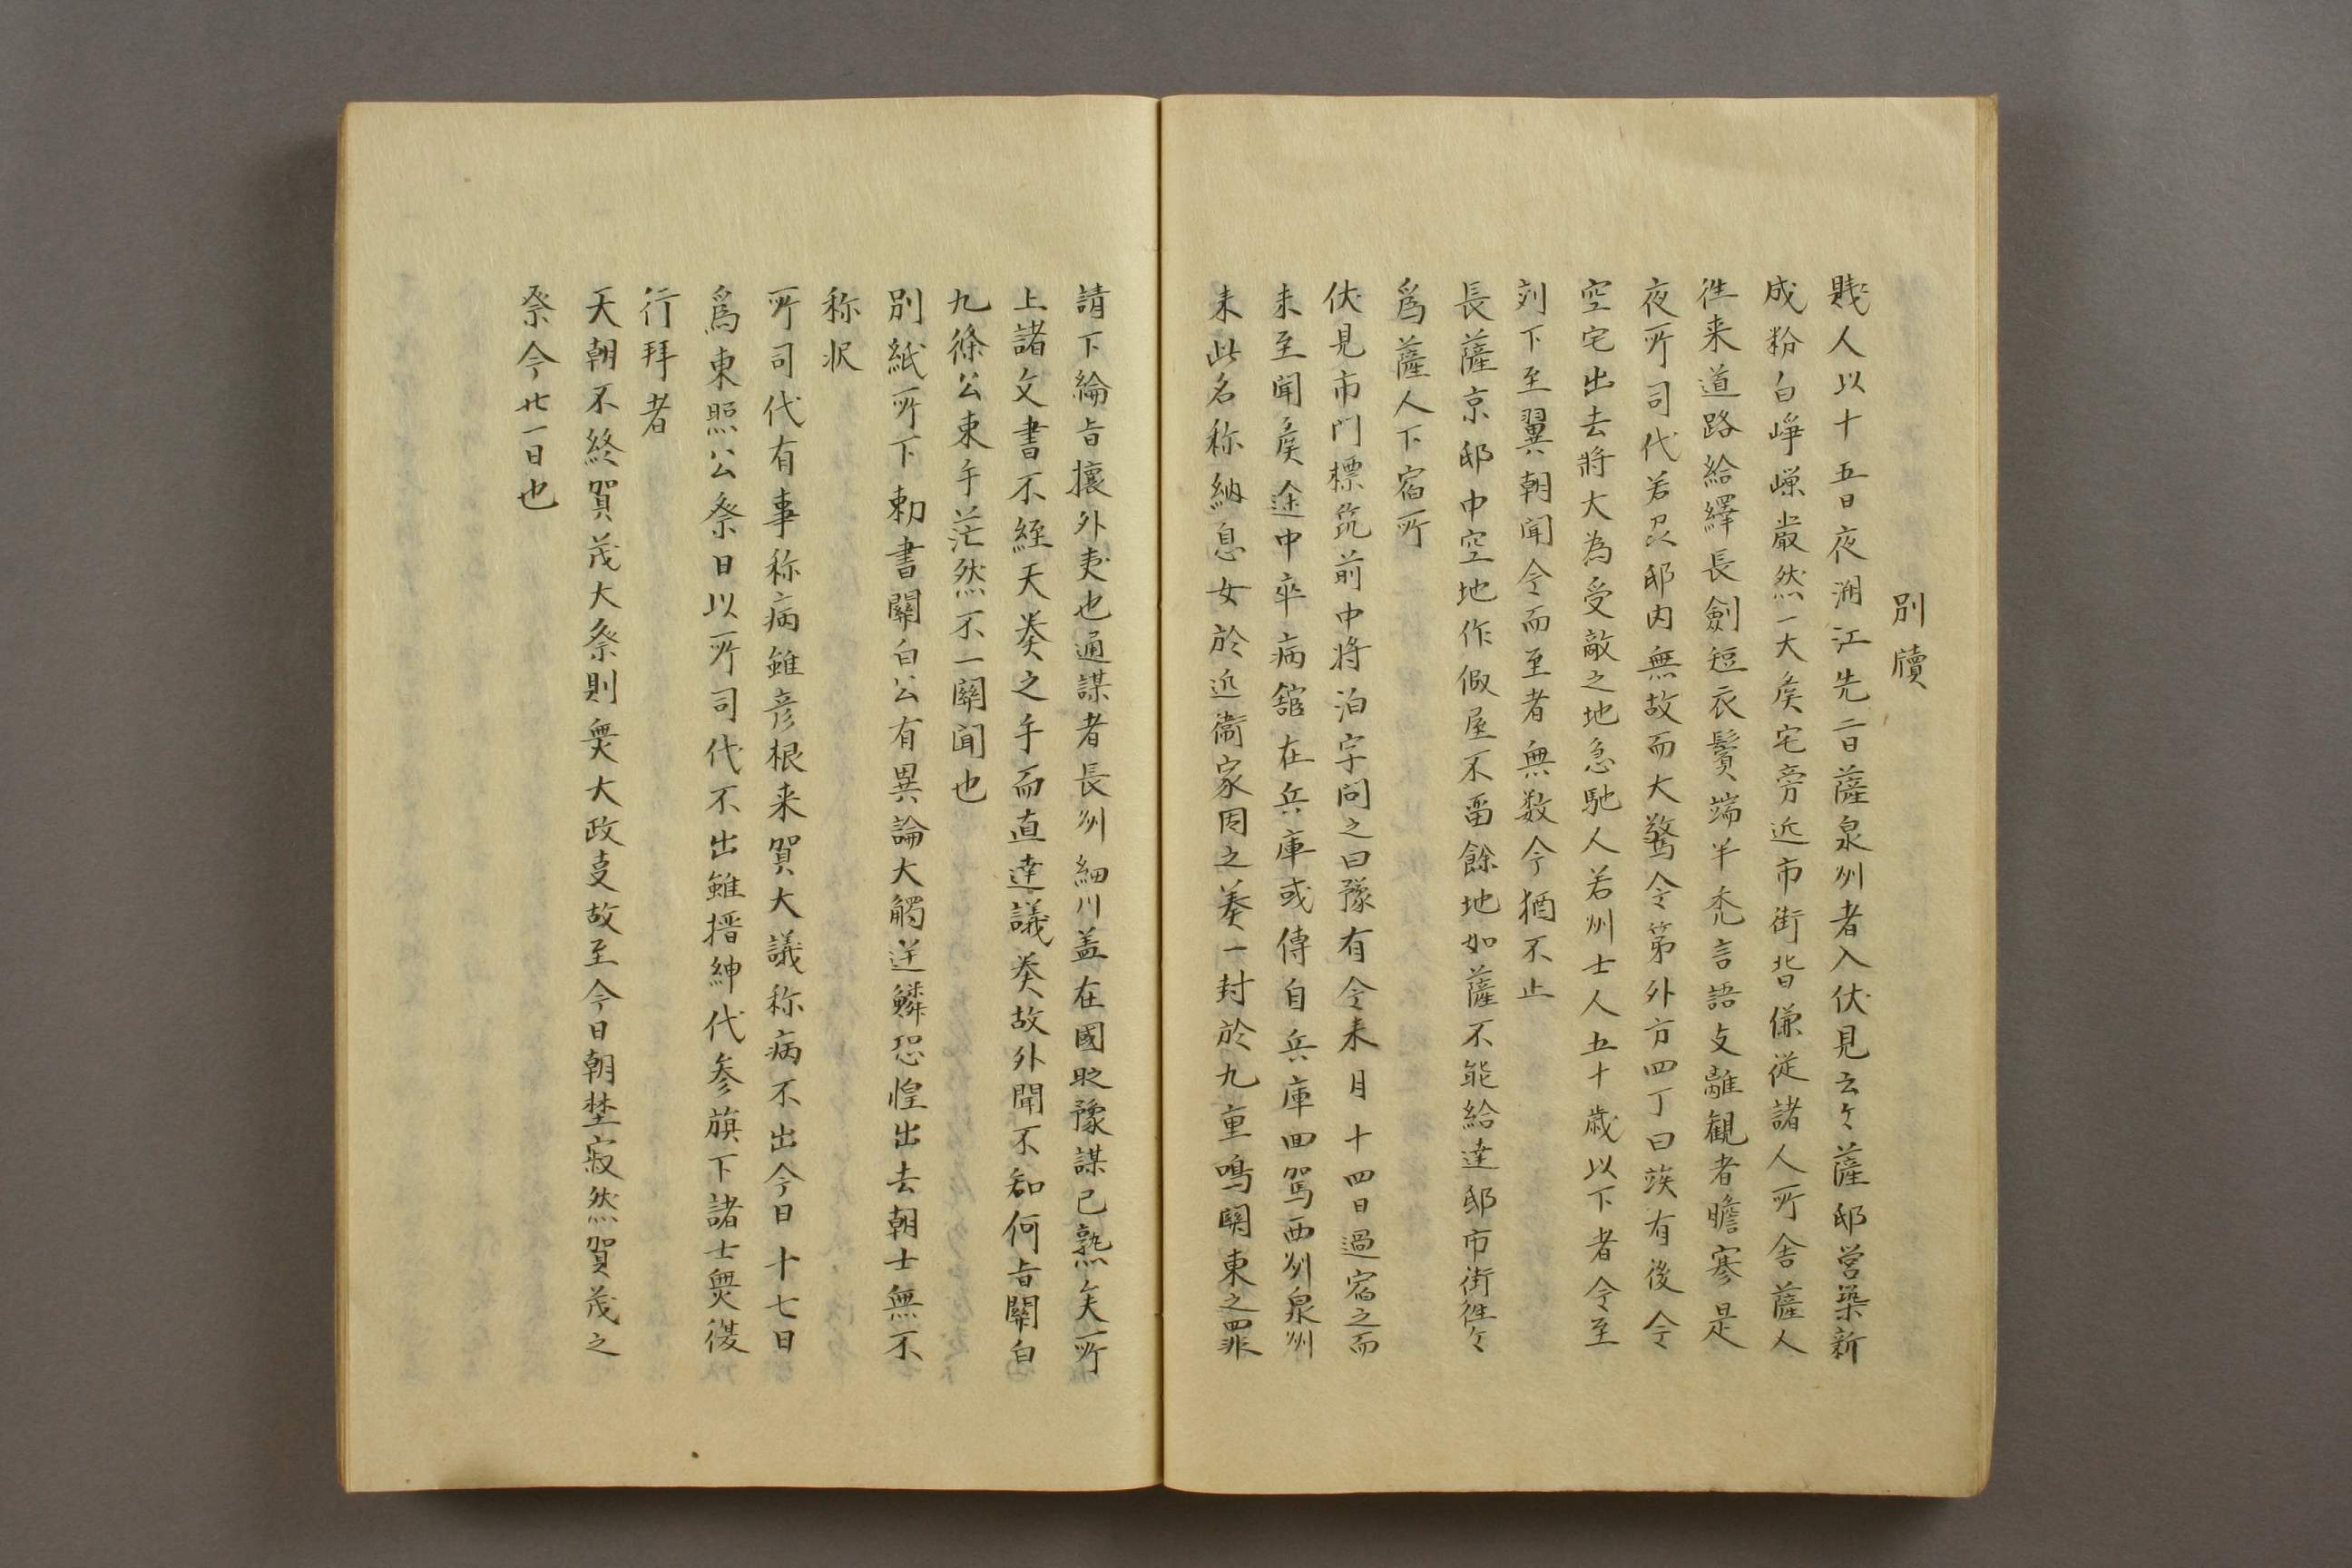 別牘
賤人以十五日夜溯江先二日薩泉州者入伏見云々薩邸営築新
成粉白崢嶸嚴然一大矦宅旁近市街皆傔従諸人所舎薩人
徃来道路給繹長劍短衣鬢端半禿言語支離観者瞻寒是
夜所司代若邸内無故而大驚令第外方四丁曰竢有後令
空宅出去將大為受敵之地急馳人若州士人五十歳以下者令至
刻下至翼朝聞令而至者無数今猶不止
長薩京邸中空地作假屋不畱餘地如薩不能給達邸市街徃々
爲薩人下宿所
伏見市門標筑前中将泊字問之曰豫有令来月十四日過宿之而
未至聞矦途中卒病舘在兵庫或傳自兵庫回駕西州泉州
来此名称納息女於近衛家因之奏一封於九重鳴関東之罪
請下綸旨攘外夷也通謀者長州細川盖在國貶豫謀已熟矣所
上諸文書不經天奏之手而直達議奏故外聞不知何旨關白
九條公束手茫然不一關聞也
別紙所下勅書關白公有異論大觸逆鱗恐惶出去朝士無不
称状
所司代有事称病雖彦根来賀大議称病不出今日十七日
爲東照公祭日以所司代不出雖搢紳代参旗下諸士無復
行拜者
天朝不終賀茂大祭則無大政支故至今日朝埜寂然賀茂之
祭今廿一日也